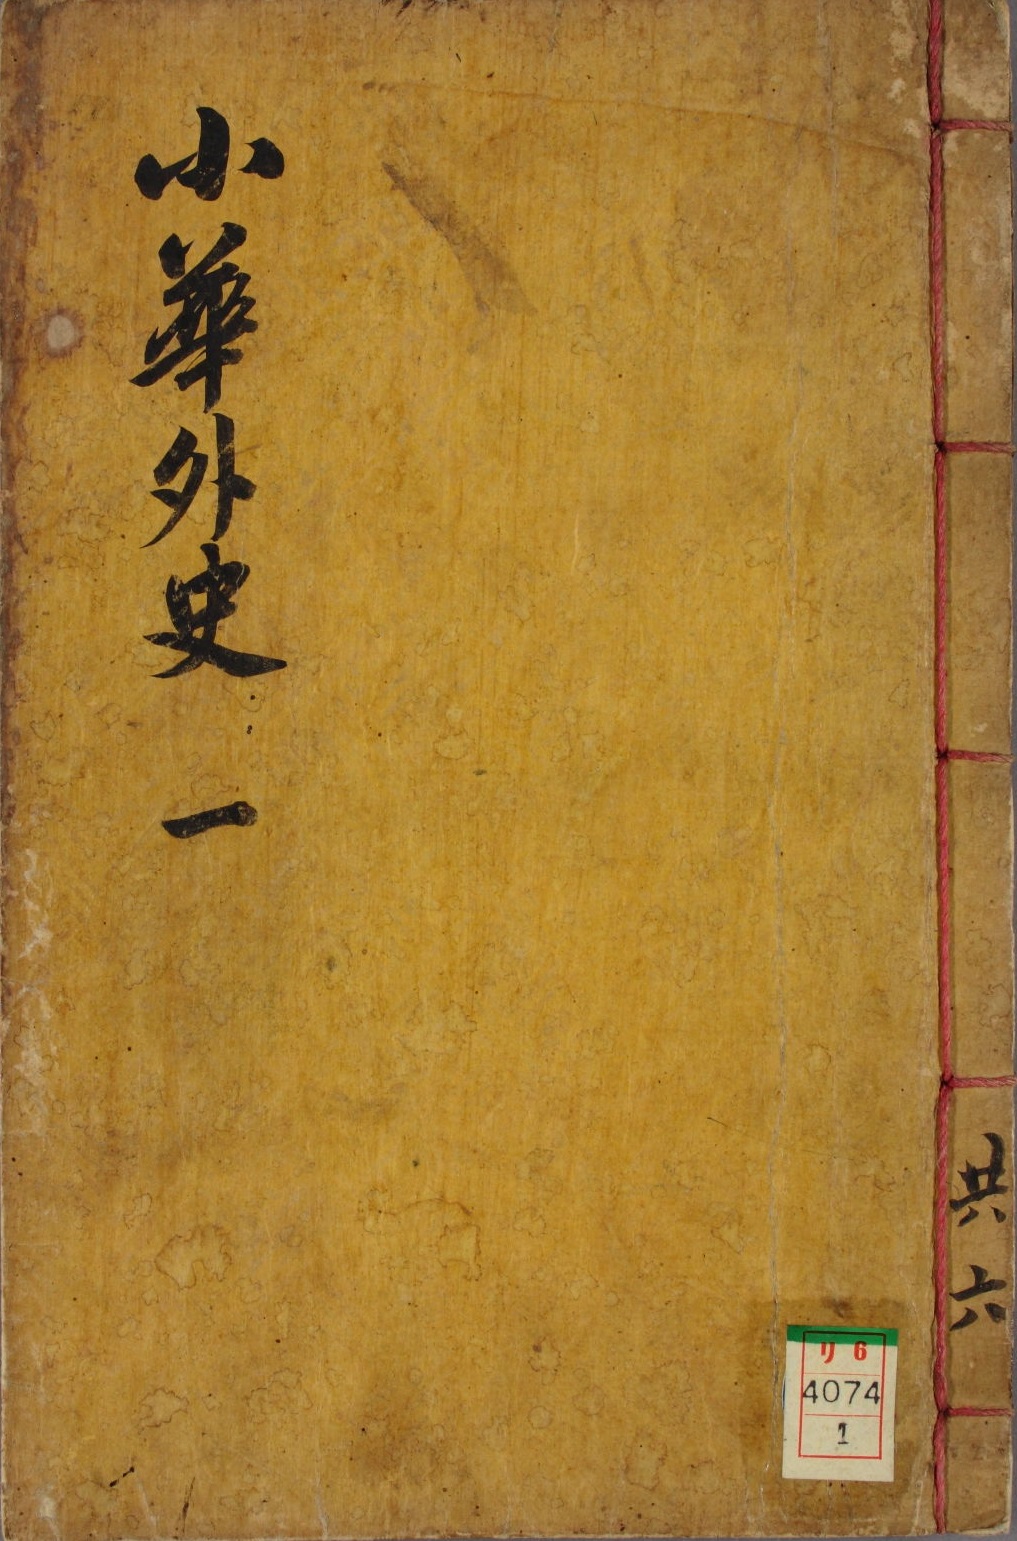 小華外史 一
共六
リ 6
4074
1